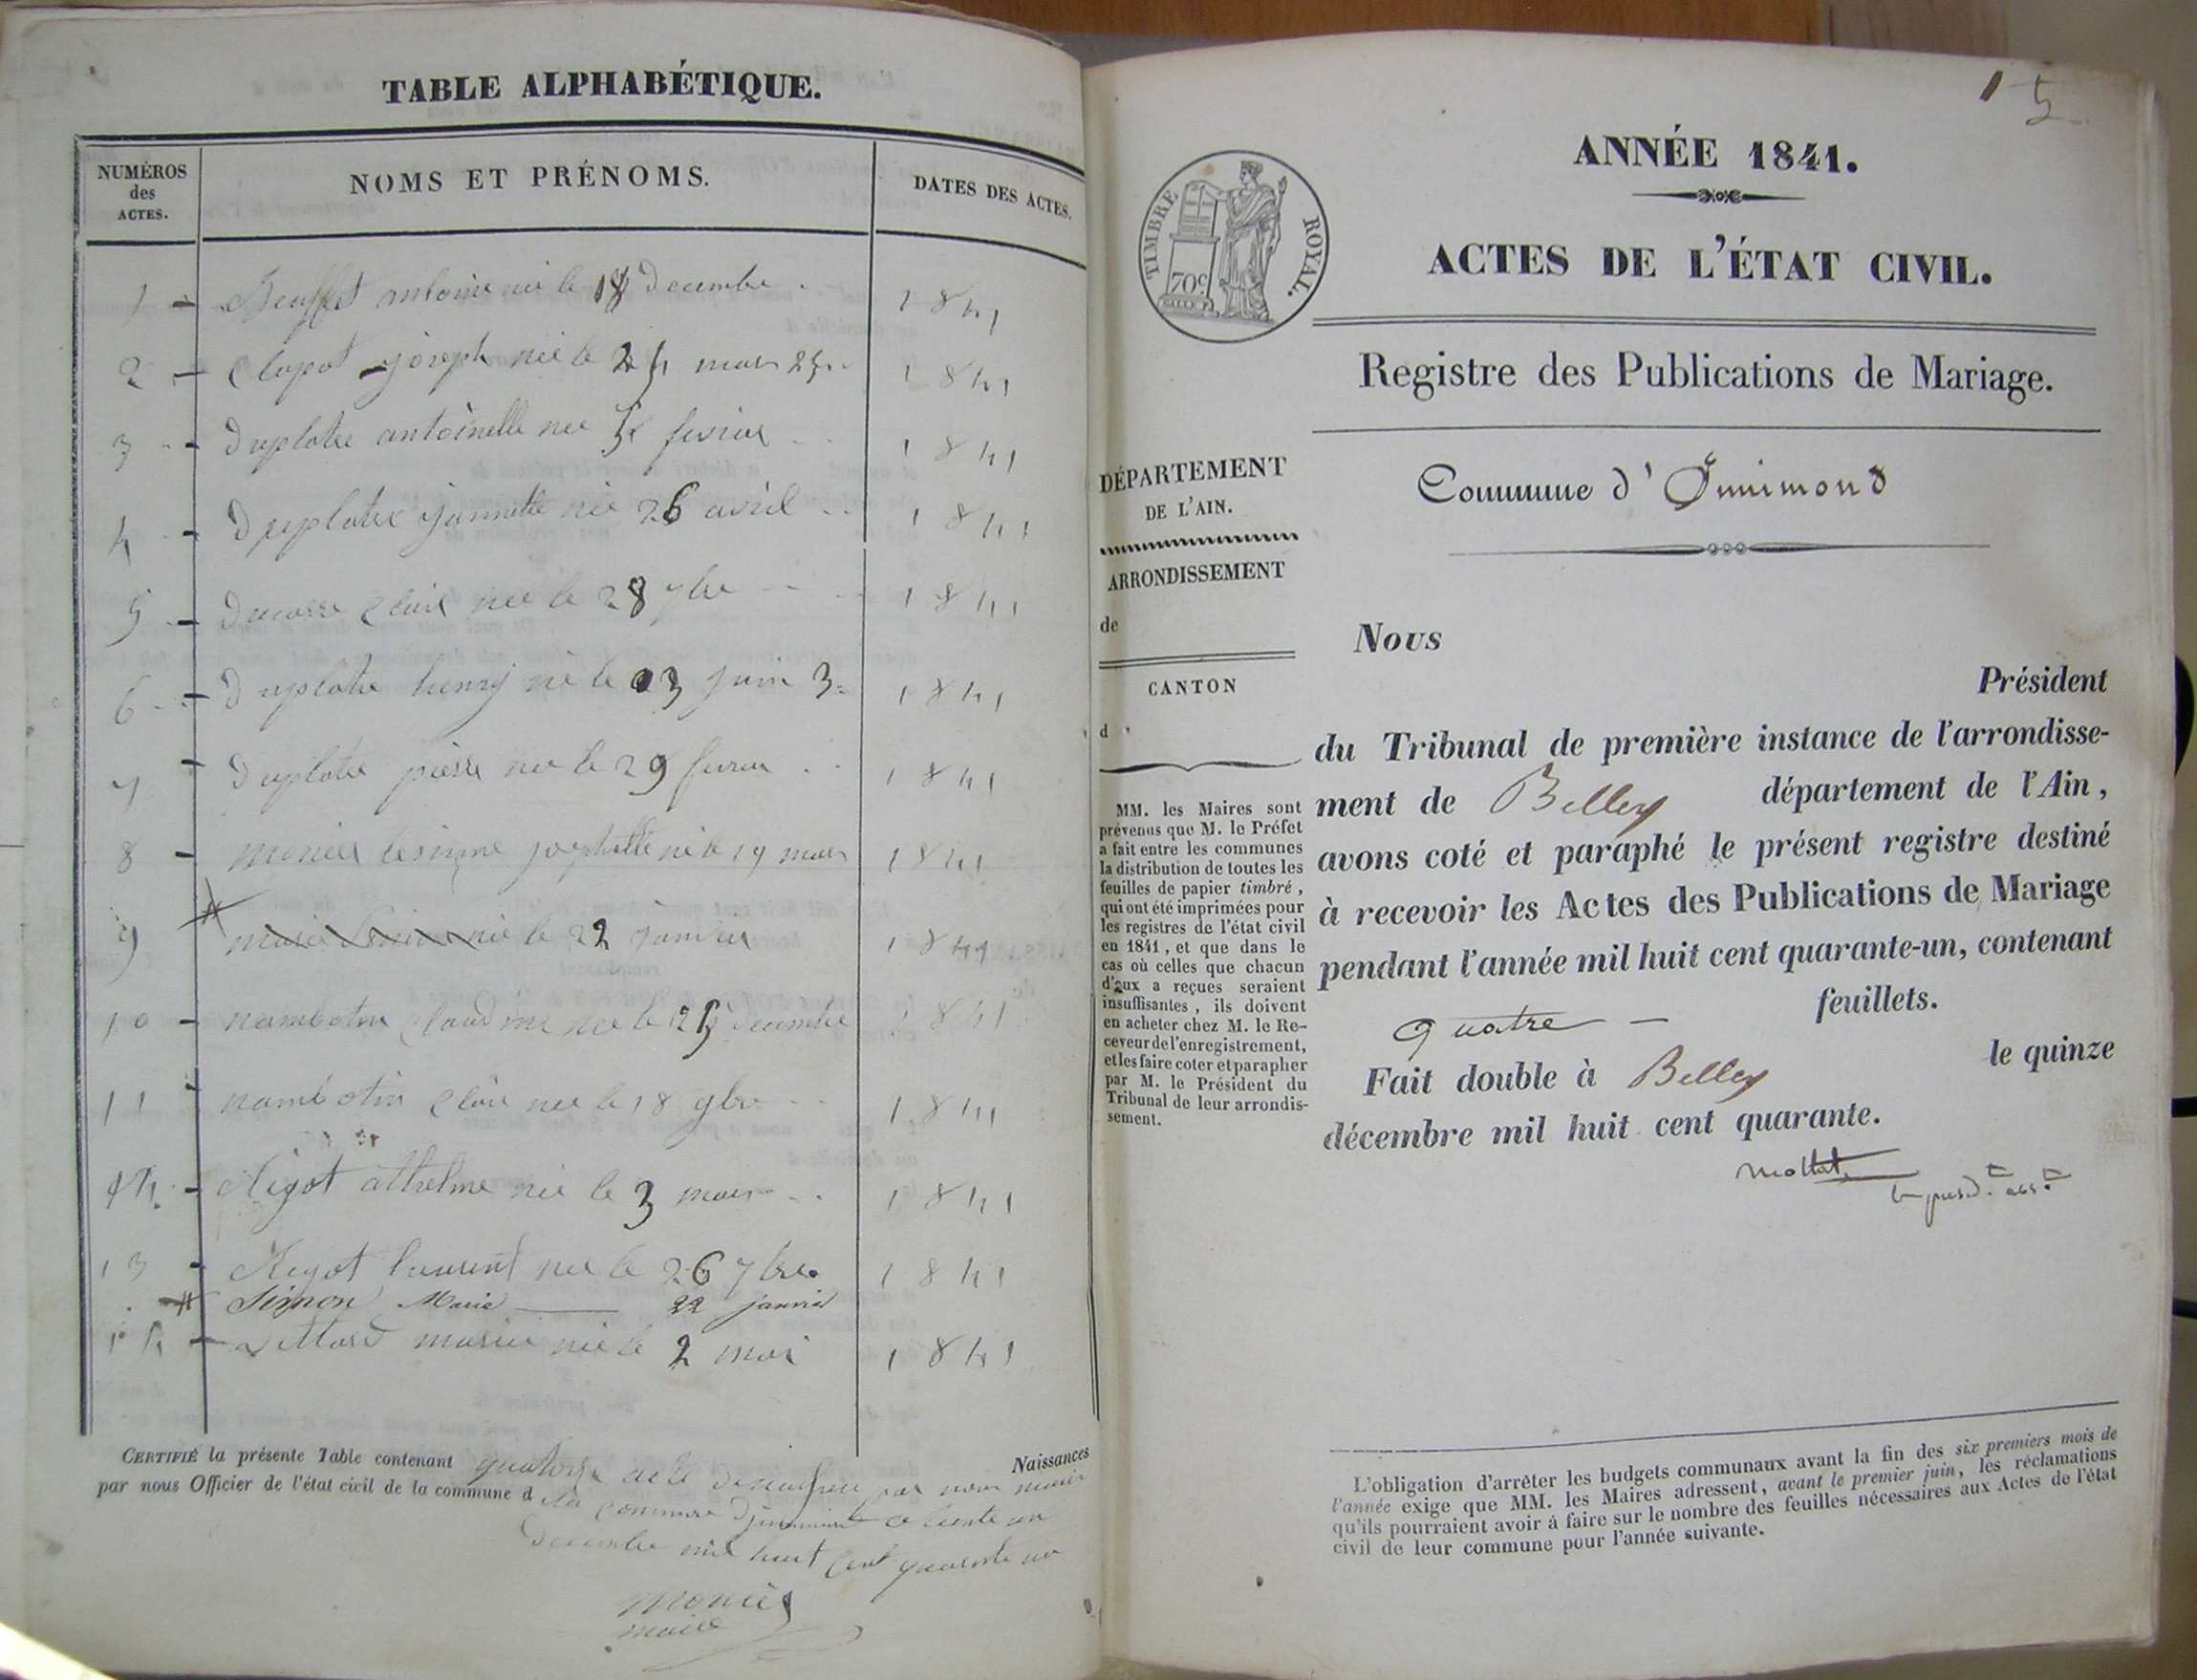 TABLE ALPHABÉTIQUE.
NUMÉROS
des
ACTES.
NOMS ET PRÉNOMS.
DATES DES ACTES.
1 antoine né le 18 Decembre 1841
2 Clapot joseph née le 24 mars 25 1841
3 Duplatre antoinette nee 5 fevrier 1841
4 Duplatre jannette née 26 avril 1841
5 Claire nee le 28 7bre 1841
6 Duplatre henry né le 3 juin 3 1841
7 Duplatre pierre nee le 29 fevrier 1841
8 monier josephette née le 19 mars 1841
9 née le 22 janvier 1841
10 nambotin Claudine nee le 25 decembre 1841
11 nambotin Claire nee le 18 9bre 1841
Rigot athelme née le 3 mars 1841
13 Rigot laurent nee le 26 7bre 1841
Simon Marie 22 janvier
14 marie née le 2 mai 1841
CERTIFIÉ la présente Table contenant quatorze acte de par nous maire Naissances
par nous Officier de l'état civil de la commune d la commune ce trente un
Decembre mil huit cent quarante un
monier
maire
1 5
TIMBRE ROYAL.
70c
ANNÉE 1841.
ACTES DE L'ÉTAT CIVIL.
Registre des Publications de Mariage.
Commune d'Innimond
DÉPARTEMENT
DE L'AIN.
ARRONDISSEMENT
de
CANTON
d
MM. les Maires sont
prévenus que M. le Préfet
a fait entre les communes
la distribution de toutes les
feuilles de papier timbré,
qui ont été imprimées pour
les registres de l'état civil
en 1841, et que dans le
cas où celles que chacun
d'eux a reçues seraient
insuffisantes, ils doivent
en acheter chez M. le Re-
ceveur de l'enregistrement,
et les faire coter et parapher
par M. le Président du
Tribunal de leur arrondis-
sement.
Nous
Président
du Tribunal de première instance de l'arrondisse-
ment de Belley département de l'Ain,
avons coté et paraphé le présent registre destiné
à recevoir les Actes des Publications de Mariage
pendant l'année mil huit cent quarante-un, contenant
quatre — feuillets.
Fait double à Belley le quinze
décembre mil huit cent quarante.
L'obligation d'arrêter les budgets communaux avant la fin des six premiers mois de
l'année exige que MM. les Maires adressent, avant le premier juin, les réclamations
qu'ils pourraient avoir à faire sur le nombre des feuilles nécessaires aux Actes de l'état
civil de leur commune pour l'année suivante.